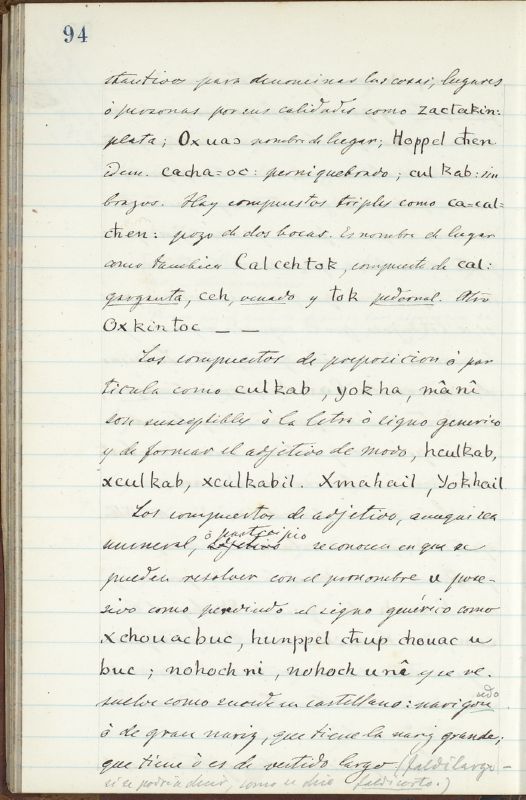 94
stantivos para denominar las cosas, lugares
ó personas por sus calidades como zactakin:
plata; Oxuas nombre de lugar; Hoppelchen
Idem. cacha=oc: perniquebrado; culkab: sin
brazos. Hay compuestos triples como ca=cal=
chen: pozo de dos bocas. Es nombre de lugar
como tambien Calcehtok, compuesto de cal:
garganta, ceh, venado y tok pedernal. Otro
Oxkintoc _ _
Los compuestos de preposicion ó par
ticula como culkab, yokha, mânî
son susceptibles á la letra ó signo generico
y de formar el adjetivo de modo, hculkab,
xculkab, xculkabil. Xmahail, Yokhail
Los compuestos de adjetivo, aunque sea
numeral, ó participio reconocen en que se
pueden resolver con el pronombre u pose-
sivo como perdiendo el signo genérico como
Xchouacbuc, hunppel chup chouac u
buc; nohoch ni, nohoch unî que re-
suelve como sucede en castellano: narigon udo
ó de gran nariz, que tiene la nariz grande;
que tiene ó es de vestido largo (faldilargo -
si se podria decir, como se dice faldicorto.)